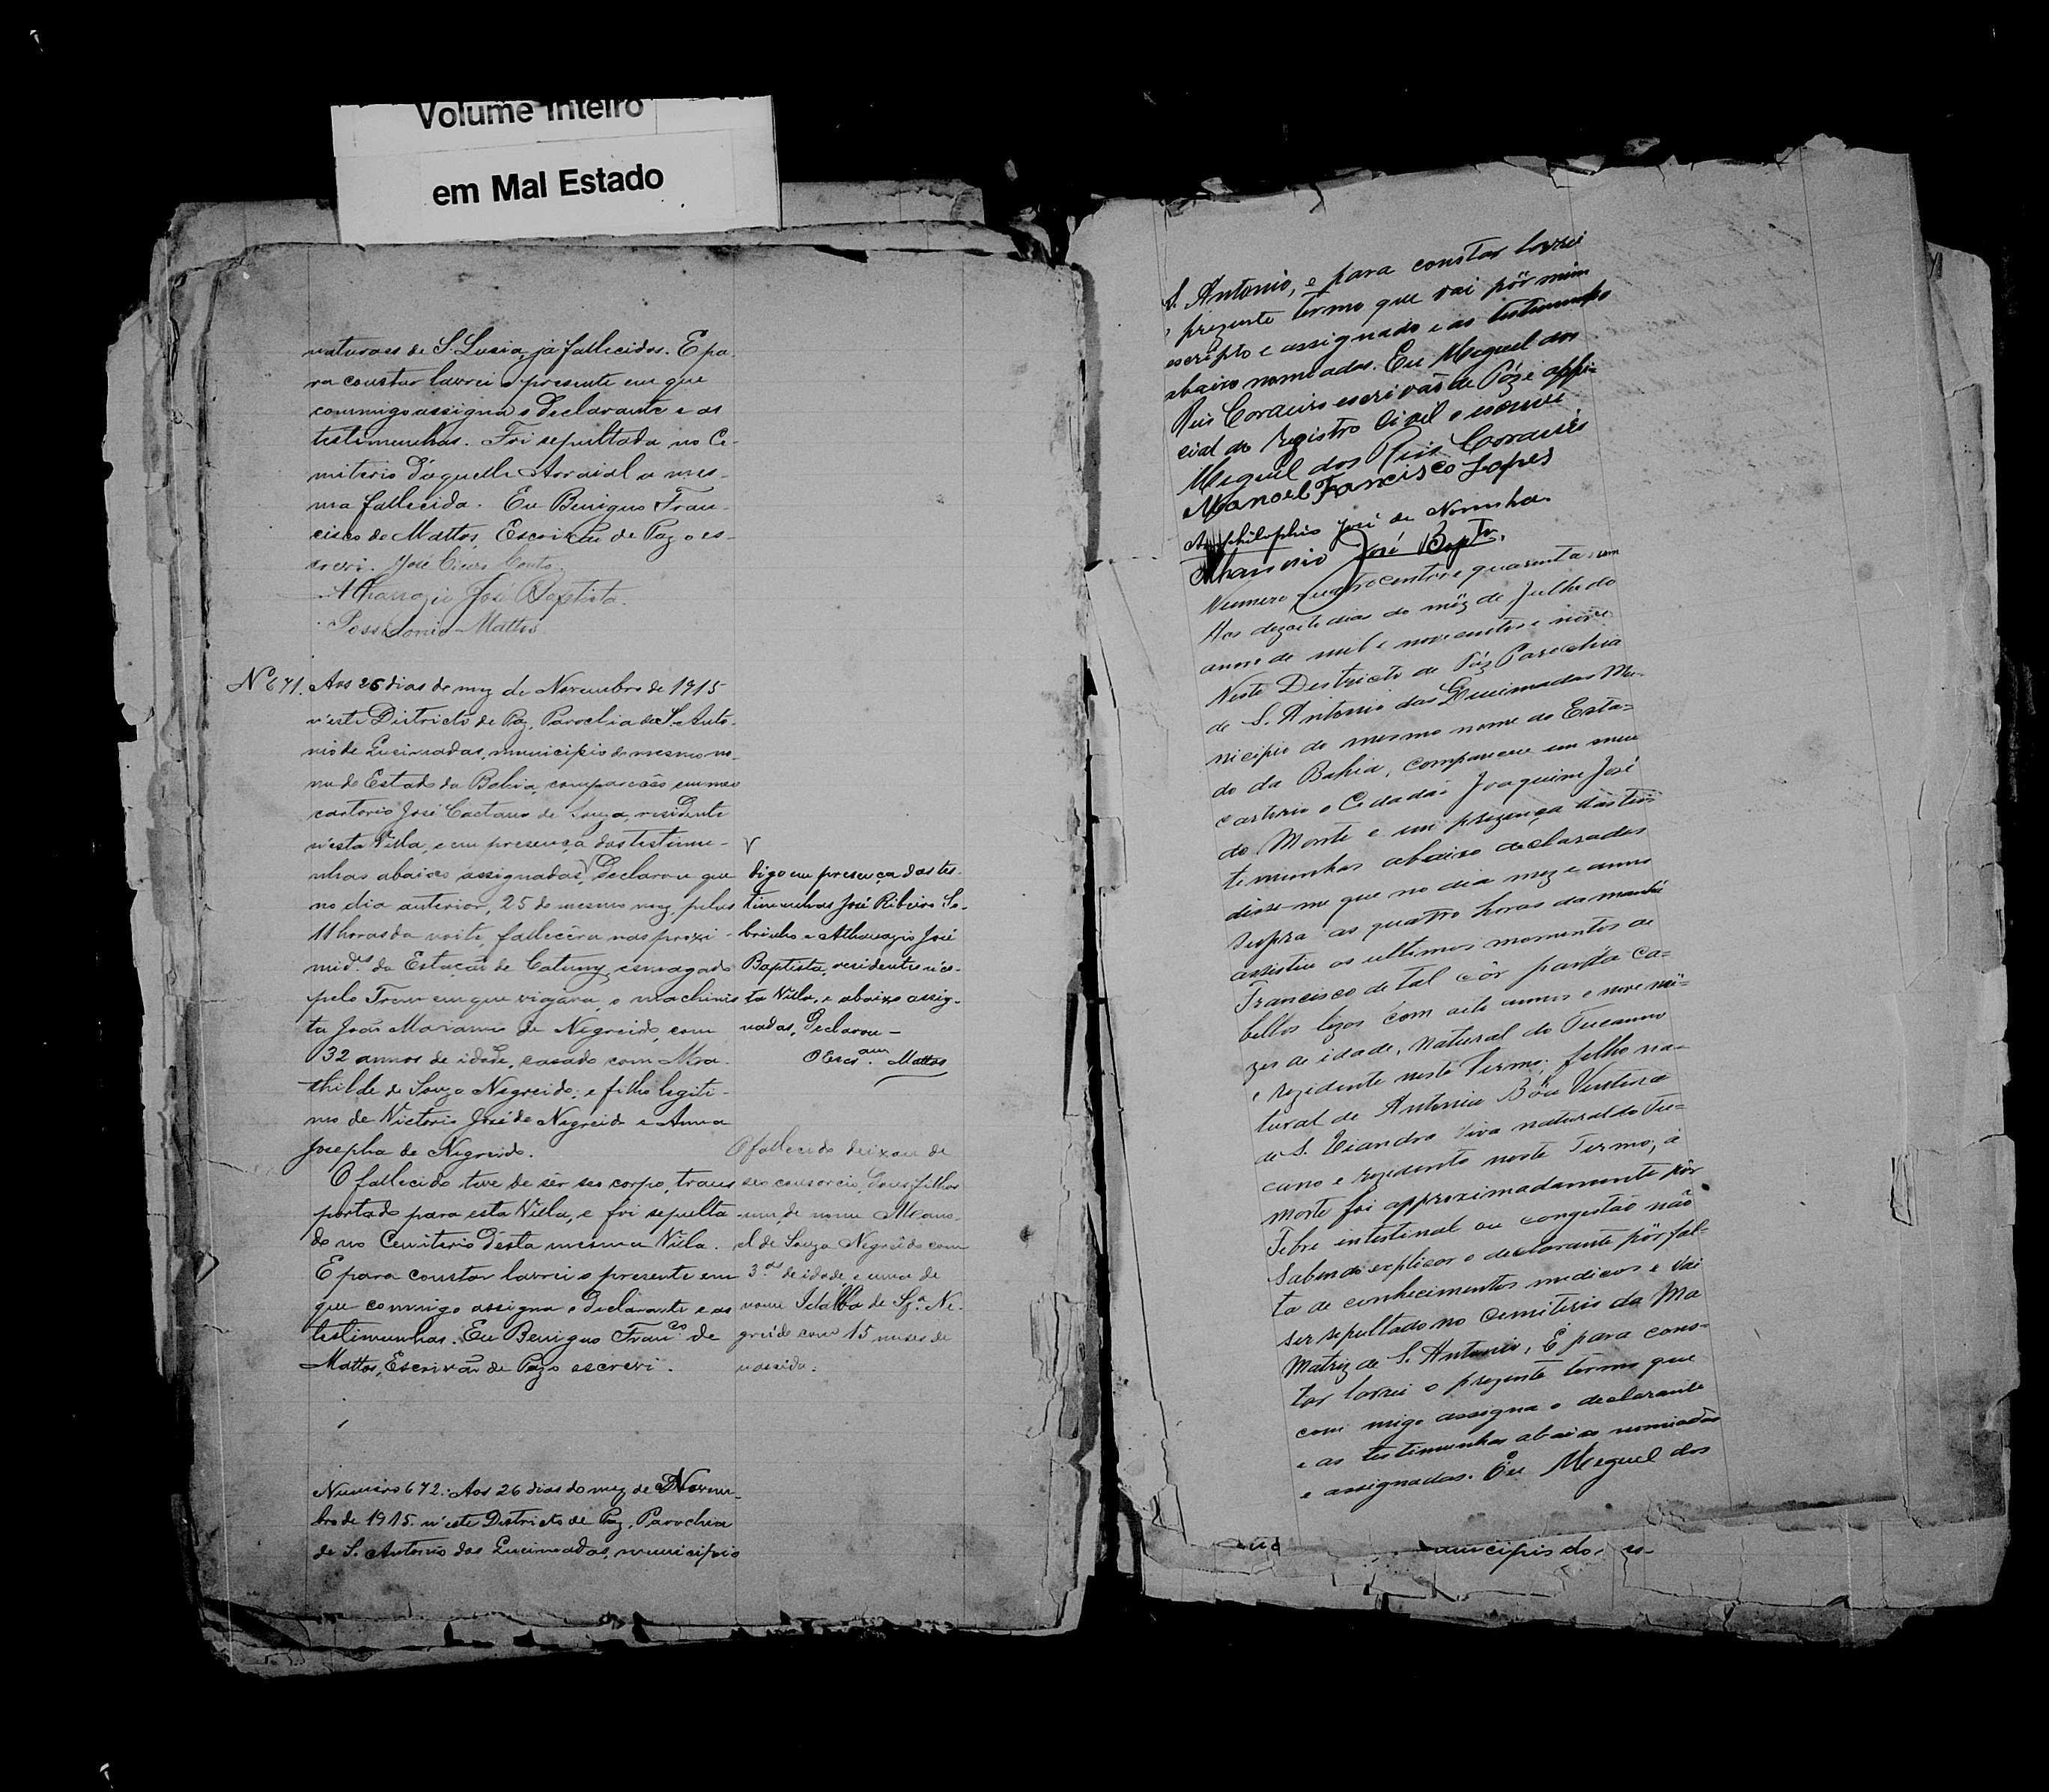 Volume Inteiro
em Mal Estado
naturaes de S. Lusia, já fallecidos. E pa-
ra constar lavrei o presente em que
commigo assigna o declarante e as
testimunhas. Foi sepultada no Ce-
miterio d'aquelle Arraial a mes-
ma fallecida. Eu Benigno Fran-
cisco de Mattos, Escrivão de Paz o es-
crevi. José
Athanazio José Baptista.
Possidonio Mattos
Nº 671. Aos 26 dias do mez de Novembro de 1915
n'este Districto de Paz, Parochia de S. Anto-
nio de Queimadas, municipio do mesmo no-
me do Estado da Bahia, compareceo em meo
cartorio José Caetano de Souza, residente
n'esta Villa, e em presença das testimu-
nhas abaixo assignadas, V Declarou que
no dia anterior, 25 do mesmo mez, pelas
11 horas da noite, fallecêra nas proxi-
mid.es da Estação de Catuny, esmagado
pelo Tram em que viajava, o machinis
ta João Mariano de Negreido, com
32 annos de idade, casado com Ma-
thilde de Souza Negreido, e filho legiti-
mo de Victorio José de Negreido e Anna
Josepha de Negreido.
O fallecido teve de sêr seo corpo, trans
portado para esta Villa, e foi sepulta-
do no Cemiterio d'esta mesma Villa.
E para constar lavrei o presente em
que commigo assigna o declarante e as
testimunhas. Eu Benigno Fran.co de
Mattos, Escrivão de Paz o escrevi.
V
digo em presença das tes-
timunhas José Ribeiro So-
brinho e Athanazio José
Baptista, residentes n'es-
ta Villa, e abaixo assig-
nadas, Declarou –
O Escr.am Mattos
O fallecido deixou de
seo consorcio, dous filhos
um de nome Mano-
el de Souza Negreido com
3.as de idade, e uma de
nome Idalba de Sz.a Ne-
greido com 15 meses de
nascida.
Numero 672. Aos 26 dias do mez de Novem-
bro de 1915. n'este Districto de Paz, Parochia
de S. Antonio das Queimadas, municipio
S. Antonio, e para constar lavrei
o prezente termo que vai pôr mim
escripto e assignado e as testimunhas
abaixo nomeadas. Eu Meguel dos
Reis Cordeiro escrivão de Páz e offi-
cial do Registro Civil o escrevi
Meguel dos Reis Cordeiro
Manoel Francisco Lopes
José de Noronha.
Athanasio José Bapta.
Numero quatrocentos e quarenta e um
Aos dezoito dias do mêz de Julho do
anno de mil e novecentos e nove
Neste Destricto de Páz Parochia
de S. Antonio das Queimadas Mu-
nicipio do mesmo nome do Esta-
do da Bahia, compareceu em meu
cartorio o Cidadão Joaquim José
do Monte e em prezença das tes
temunhas abaixo declaradas
disse-me que no dia mez e anno
supra as quatro horas da manhã
assistiu os ultimos momentos de
Francisco de tal côr parda ca-
bellos lizos com oito annos e nove mê-
zes de idade, natural do Tucanno
e rezidente neste Termo, filho na-
tural de Antonia Bôa Ventura
de S. Leandro viva natural do Tu-
cano e rezidente neste Termo, á
morte foi approximadamente pôr
Febre intestinal ou congestão não
Sabendo explicar o declarante pôr fal-
ta de conhecimentos medicos e vai
ser sepultado no cemiterio da Ma
Matriz de S. Antonio, E para cons-
tar lavrei o prezente termo que
com migo assigna o declarante
e as testimunhas abaixo nomiadas
e assignadas. Eu Meguel dos
municipio do